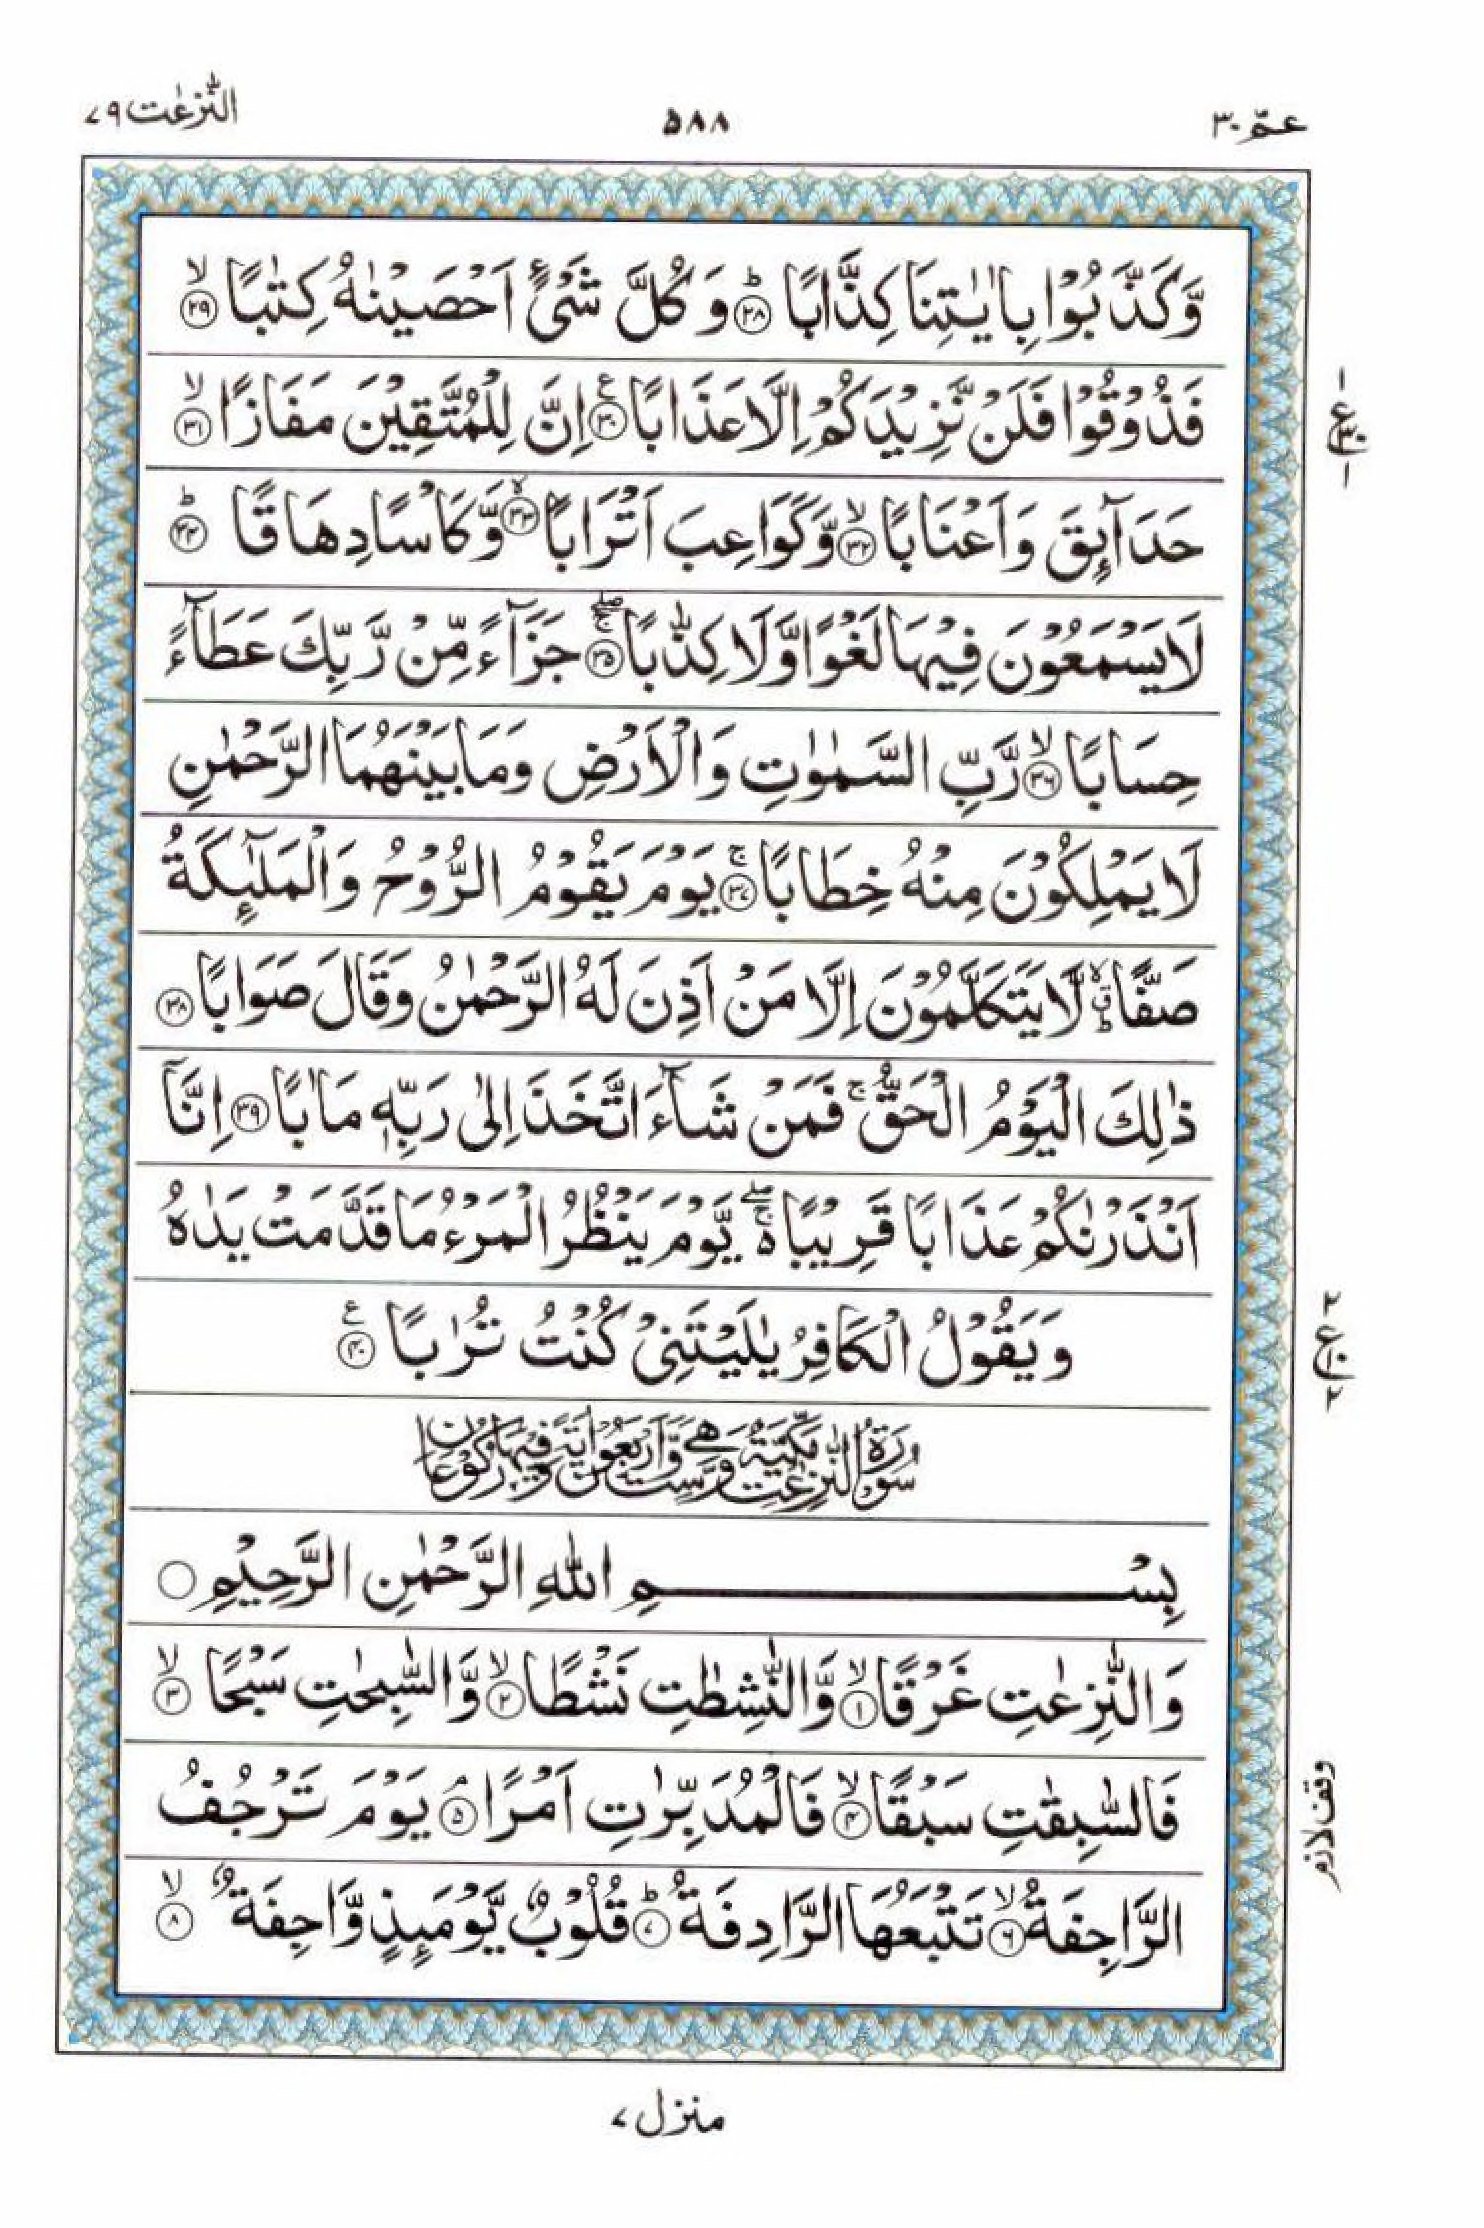 عمّ ٣٠ ٥٨٨ النّٰزعٰت ٧٩
وَّكَذَّبُوْا بِاٰيٰتِنَا كِذَّابًا ؕ‏﴿۲۸﴾ وَكُلَّ شَىْءٍ اَحْصَيْنٰهُ كِتٰبًا ۙ‏﴿۲۹﴾
فَذُوْقُوْا فَلَنْ نَّزِيْدَكُمْ اِلَّا عَذَابًا ﴿۳۰﴾ ع اِنَّ لِلْمُتَّقِيْنَ مَفَازًا ۙ‏﴿۳۱﴾
حَدَآئِقَ وَاَعْنَابًا ۙ‏﴿۳۲﴾ وَّكَوَاعِبَ اَتْرَابًا ۙ‏﴿۳۳﴾ وَّكَاْسًا دِهَاقًا ؕ‏﴿۳۴﴾
لَا يَسْمَعُوْنَ فِيْهَا لَغْوًا وَّلَا كِذّٰبًا ۚۖ‏﴿۳۵﴾ جَزَآءً مِّنْ رَّبِّكَ عَطَآءً
حِسَابًا ۙ‏﴿۳۶﴾ رَّبِّ السَّمٰوٰتِ وَالْاَرْضِ وَمَا بَيْنَهُمَا الرَّحْمٰنِ
لَا يَمْلِكُوْنَ مِنْهُ خِطَابًا ۚ‏﴿۳۷﴾ يَوْمَ يَقُوْمُ الرُّوْحُ وَالْمَلٰٓئِكَةُ
صَفًّا ۙۗؕ لَّا يَتَكَلَّمُوْنَ اِلَّا مَنْ اَذِنَ لَهُ الرَّحْمٰنُ وَقَالَ صَوَابًا ﴿۳۸﴾
ذٰلِكَ الْيَوْمُ الْحَقُّ ۚ فَمَنْ شَآءَ اتَّخَذَ اِلٰى رَبِّهٖ مَاٰبًا ﴿۳۹﴾ اِنَّآ
اَنْذَرْنٰكُمْ عَذَابًا قَرِيْبًا ۚۖ۬ يَّوْمَ يَنْظُرُ الْمَرْءُ مَا قَدَّمَتْ يَدٰهُ
وَيَقُوْلُ الْكَافِرُ يٰلَيْتَنِىْ كُنْتُ تُرٰبًا ﴿۴۰﴾ ع
سُوْرَةُ النّٰزِعٰتِ مَكِّيَّةٌ وَّهِيَ سِتٌّ وَّاَرْبَعُوْنَ اٰيَةً وَّفِيْهَا رُكُوْعَانِ
بِسْمِ اللّٰهِ الرَّحْمٰنِ الرَّحِيْمِ ۝
وَالنّٰزِعٰتِ غَرْقًا ۙ‏﴿۱﴾ وَّالنّٰشِطٰتِ نَشْطًا ۙ‏﴿۲﴾ وَّالسّٰبِحٰتِ سَبْحًا ۙ‏﴿۳﴾
فَالسّٰبِقٰتِ سَبْقًا ۙ‏﴿۴﴾ فَالْمُدَبِّرٰتِ اَمْرًا ۘ‏﴿۵﴾ يَوْمَ تَرْجُفُ
الرَّاجِفَةُ ۙ‏﴿۶﴾ تَتْبَعُهَا الرَّادِفَةُ ؕ‏﴿۷﴾ قُلُوْبٌ يَّوْمَئِذٍ وَّاجِفَةٌ ۙ‏﴿۸﴾
منزل ٧
١
ع ٣٠
١
٢
ع ١٠
٢
وقف لازم